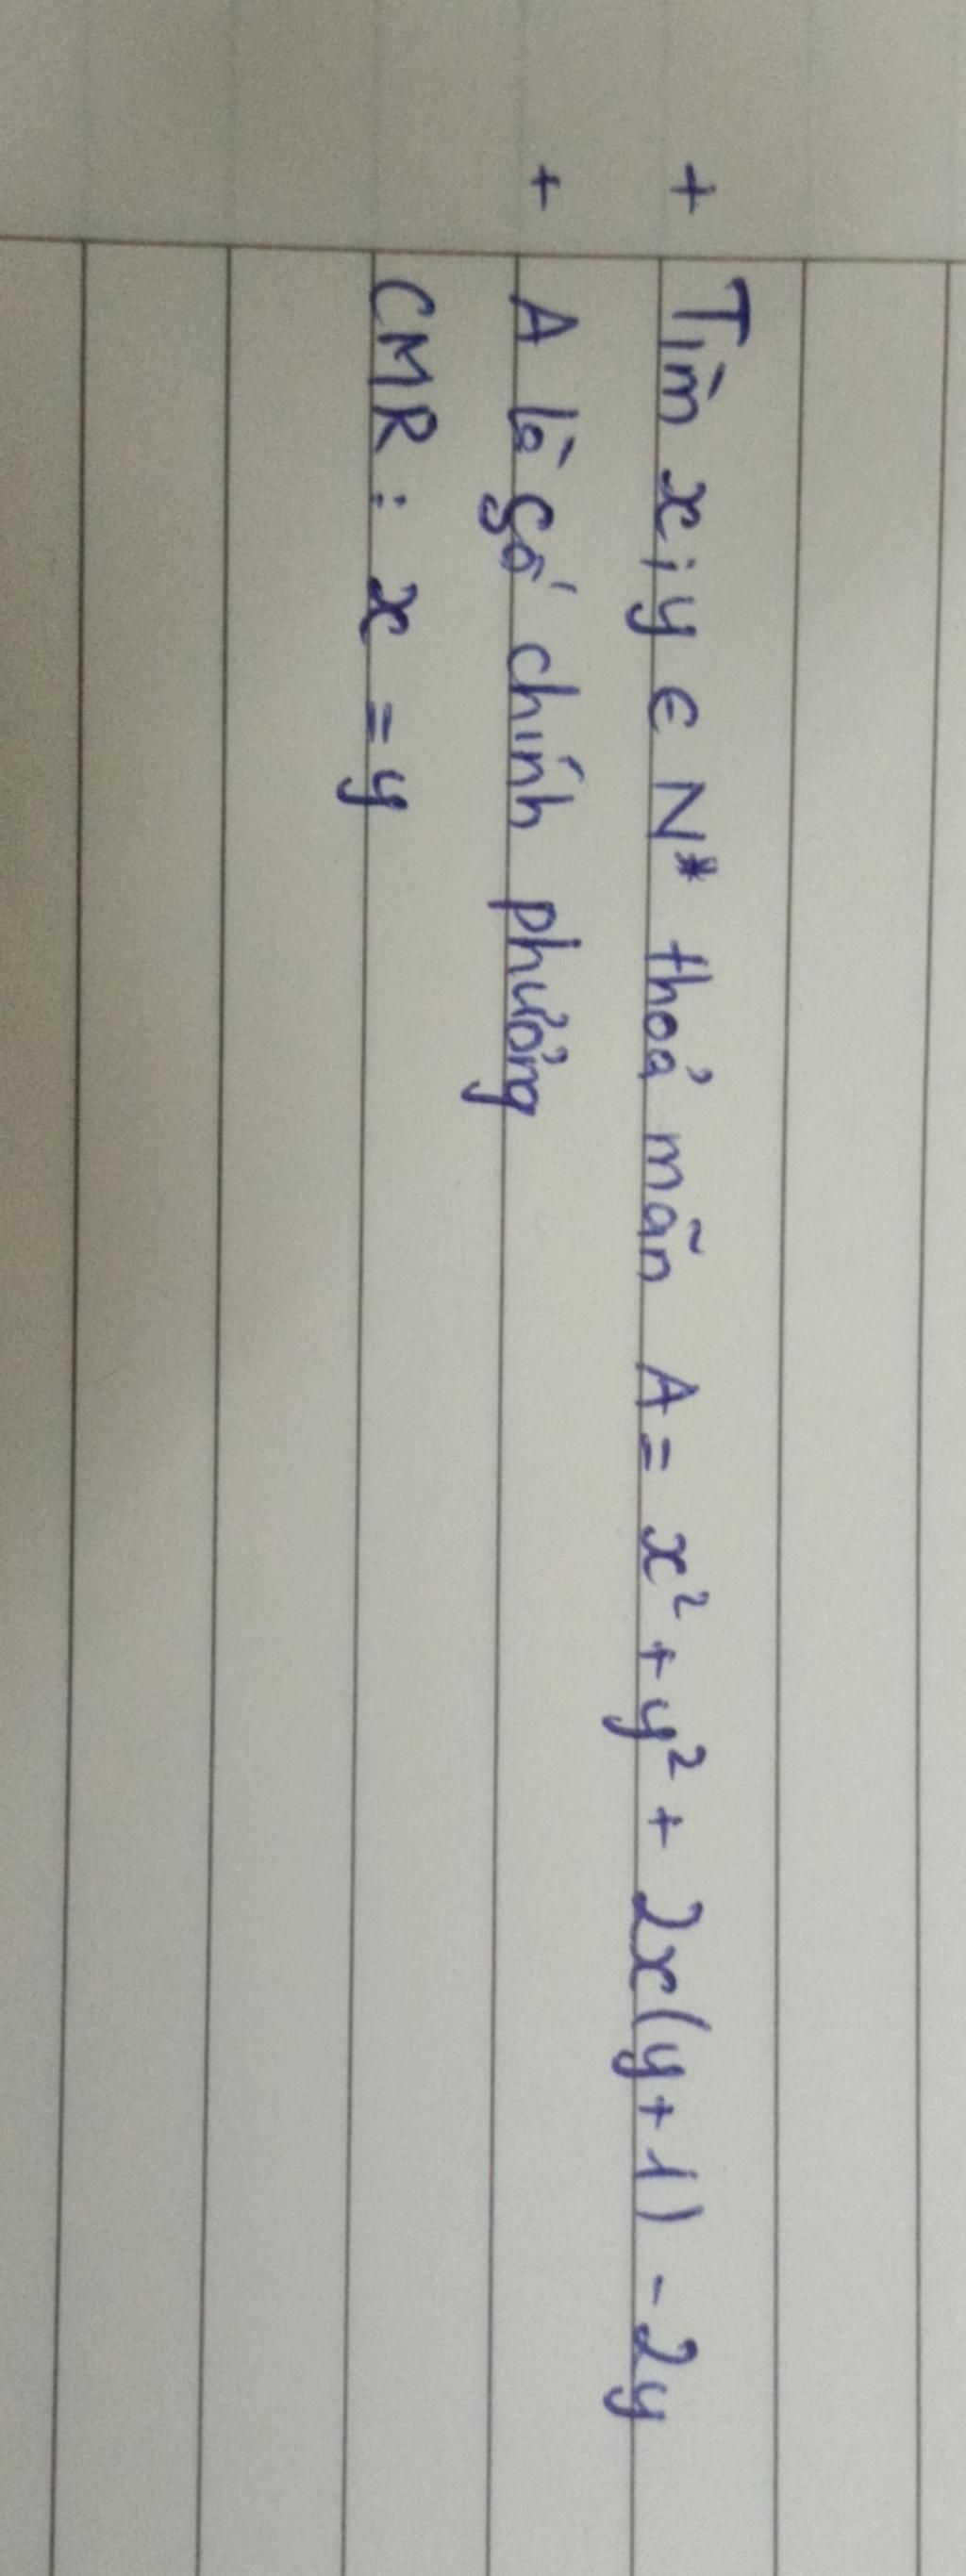 + Tìm x; y ∈ N* thoả mãn A = x² + y² + 2x(y+1) - 2y
+ A là số chính phưởng
CMR : x = y